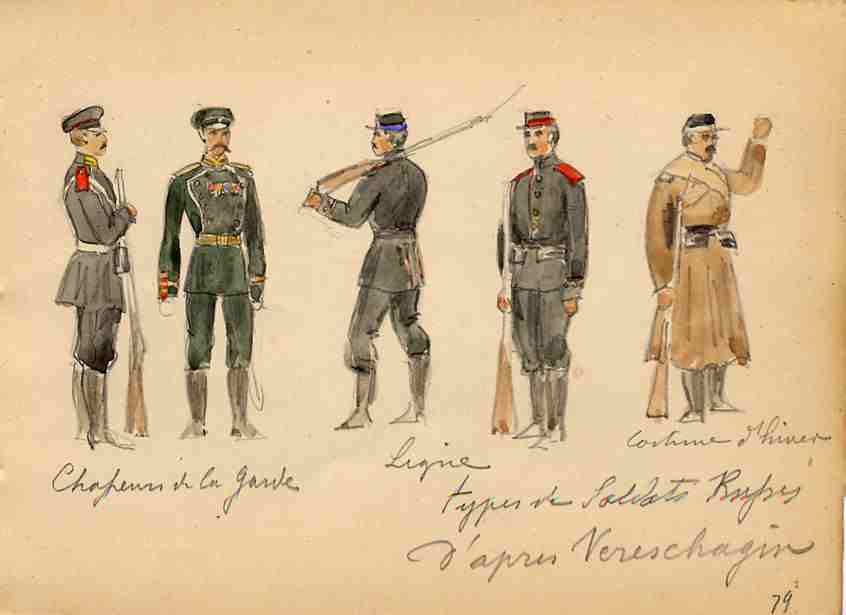 Chasseurs de la Garde
Ligne
Costume d'hiver
types de Soldats Russes
D'apres Vereschagin
79